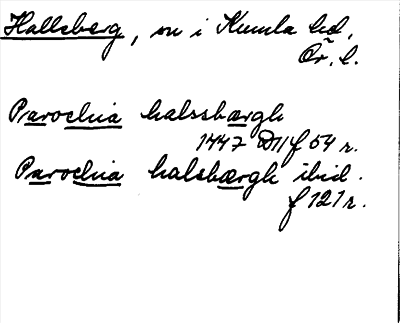 Hallsberg, sn i Kumla hd,
Ör. l.
Parochia halssbærgh
1447 D11 f 54 r.
Parochia halsbærgh ibid.
f 121 r.